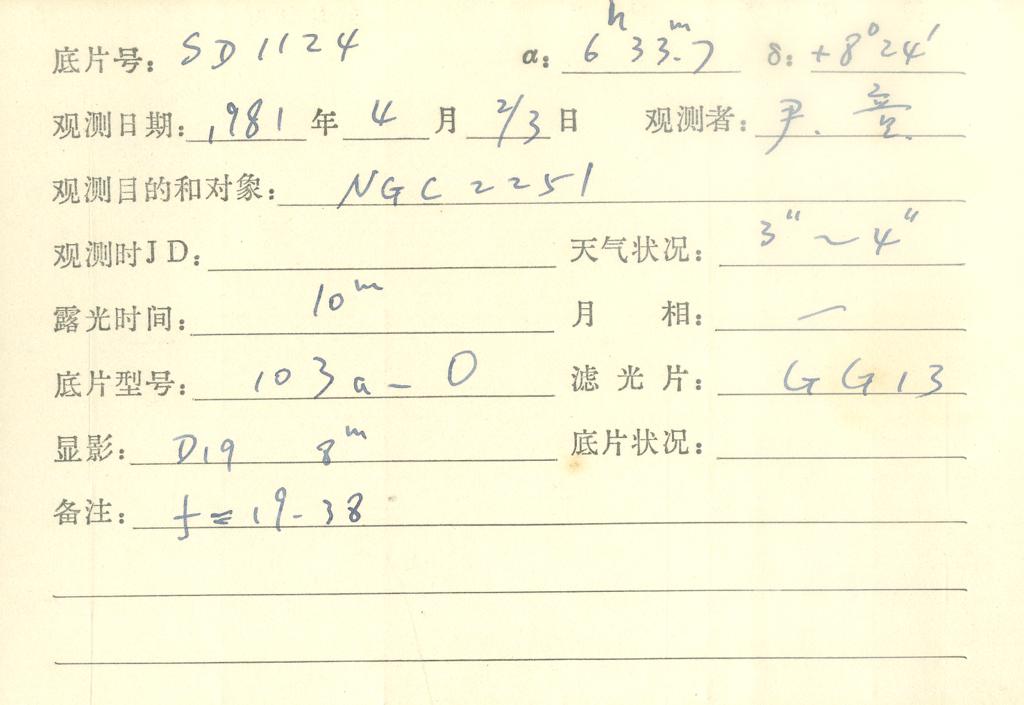 底片号: SD1124 α: 6ʰ33ᵐ.7 δ: +8°24′
观测日期: 1981 年 4 月 2/3 日 观测者: 尹.
观测目的和对象: NGC 2251
观测时JD: 天气状况: 3″~4″
露光时间: 10ᵐ 月 相: —
底片型号: 103a-O 滤光片: GG13
显影: D19 8ᵐ 底片状况:
备注: f=19.38